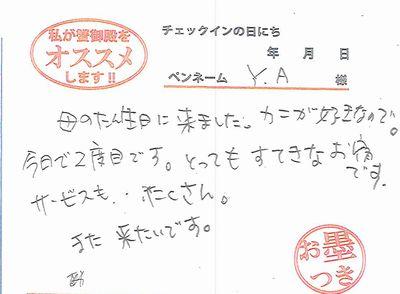 私が蟹御殿を
オススメ
します!!
チェックインの日にち
年 月 日
ペンネーム Y.A 様
母のたん生日に来ました。カニが好きなので。
今日で2度目です。とってもすてきなお宿
です。
サービスも・・たくさん。
また来たいです。
お墨
つき